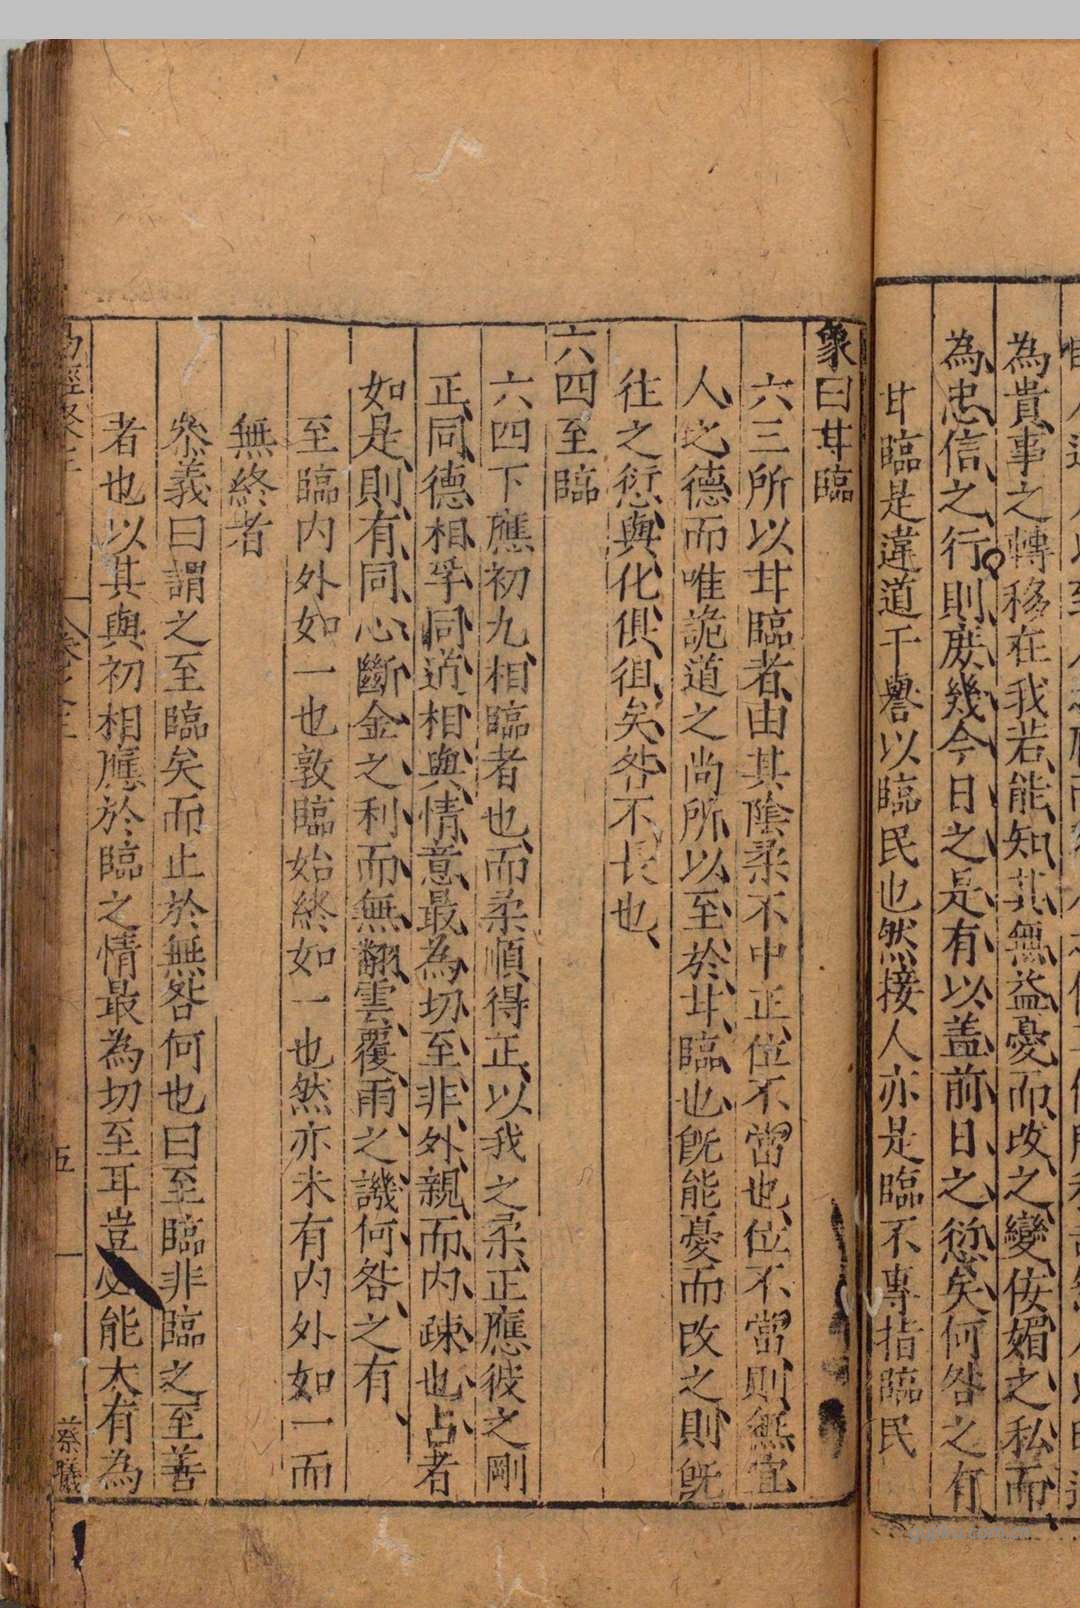 為貴事之轉移在我若能知其無益憂而改之變侫媚之私而
為忠信之行則庶幾今日之是有以盖前日之愆矣何咎之有
甘臨是違道干譽以臨民也然接人亦是臨不專指臨民
象曰甘臨
六三所以甘臨者由其陰柔不中正位不當也位不當則無宜
人之德而唯詭道之尚所以至於甘臨也旣能憂而改之則旣
往之愆與化俱徂矣咎不長也
六四至臨
六四下應初九相臨者也而柔順得正以我之柔正應彼之剛
正同德相孚同道相與情意最為切至非外親而内疎也占者
如是則有同心斷金之利而無翻雲覆雨之譏何咎之有
至臨内外如一也敦臨始終如一也然亦未有内外如一而
無終者
叅義曰謂之至臨矣而止於無咎何也曰至臨非臨之至善
者也以其與初相應於臨之情最為切至耳豈必能大有為
五
蔡